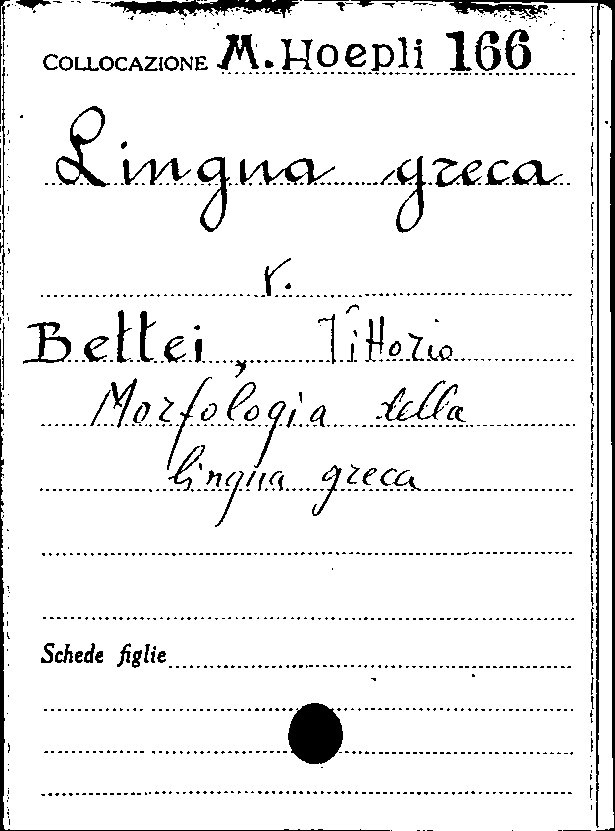 COLLOCAZIONE M. Hoepli 166
Lingua greca
v.
Bettei, Vittorio
Morfologia della
lingua greca
Schede figlie